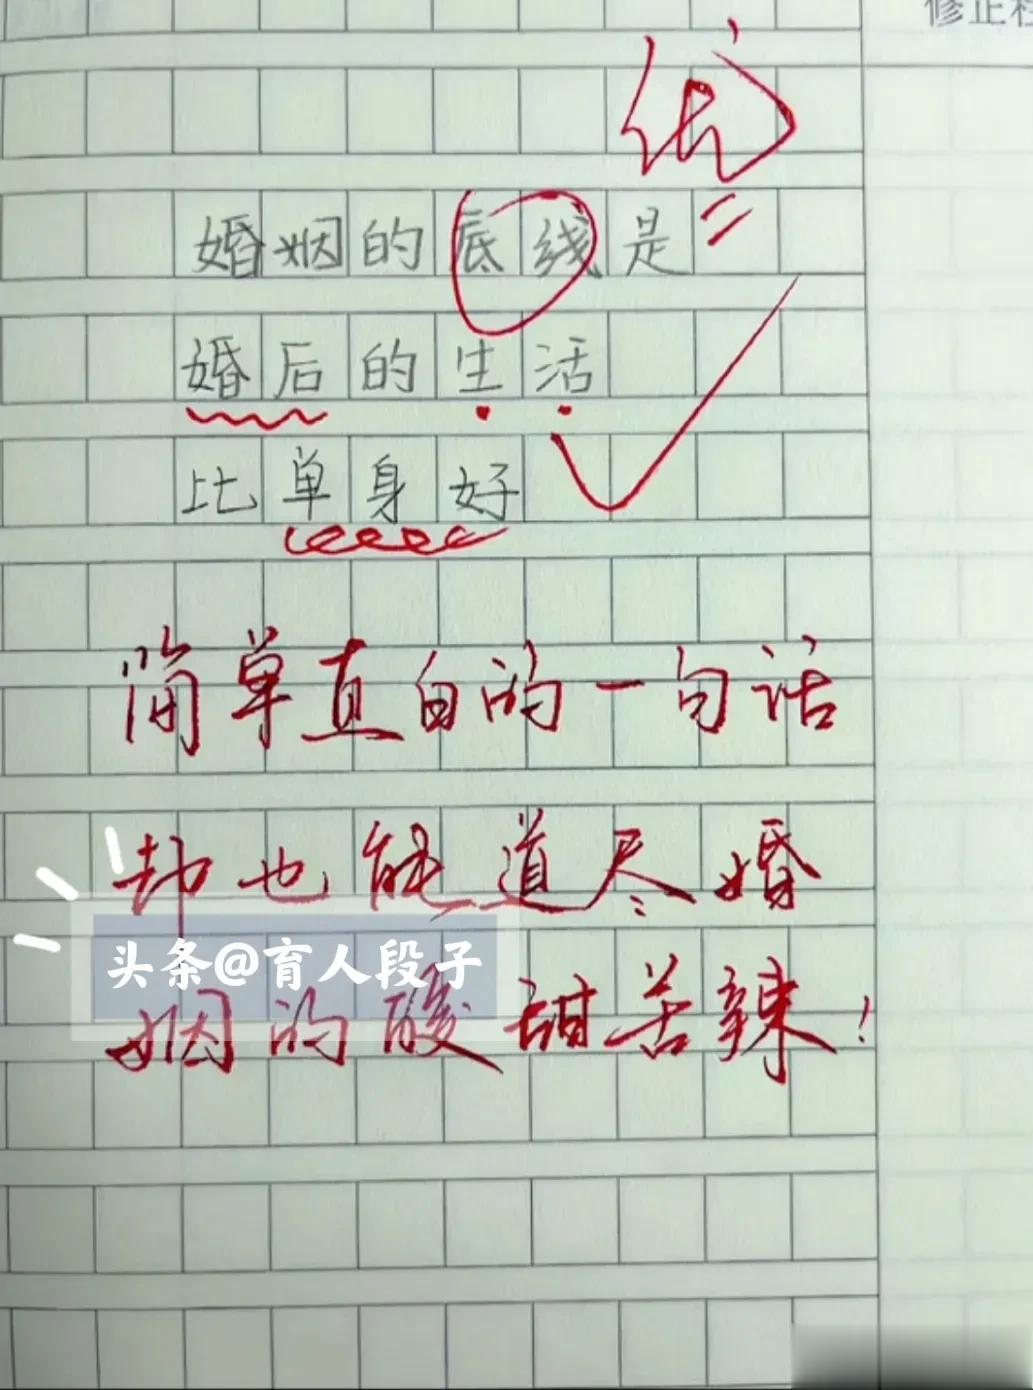 修正栏
优
婚姻的底线是
婚后的生活
比单身好
简单直白的一句话
却也能道尽婚
头条@育人段子
姻的酸甜苦辣！